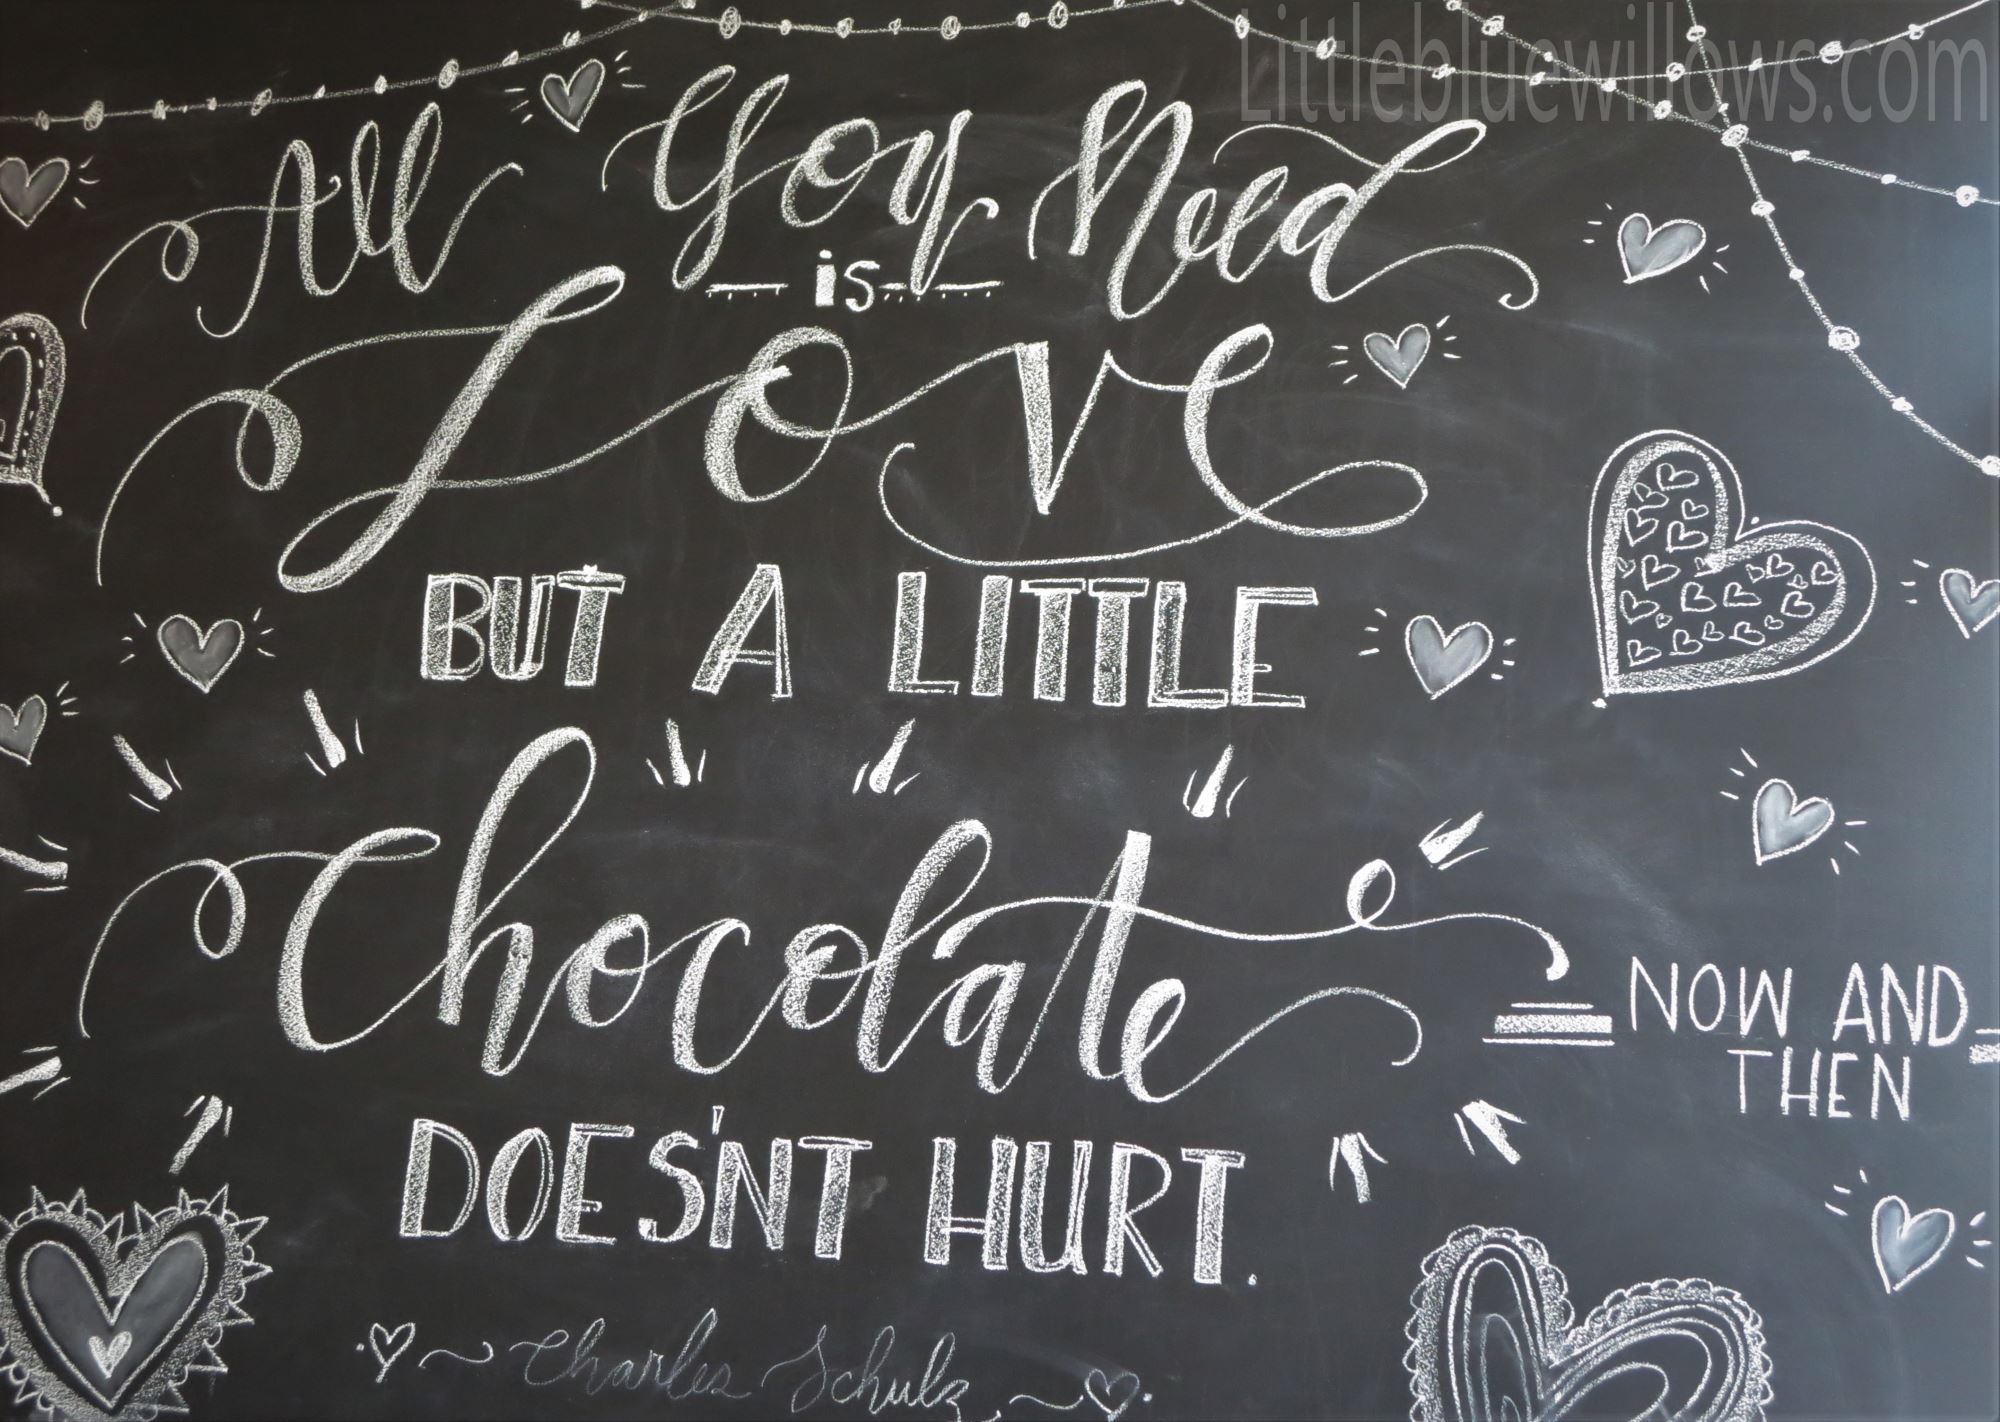 Littlebluewillows.com
All You Need
is
Love
BUT A LITTLE
Chocolate
NOW AND
THEN
DOES'NT HURT.
Charles Schulz